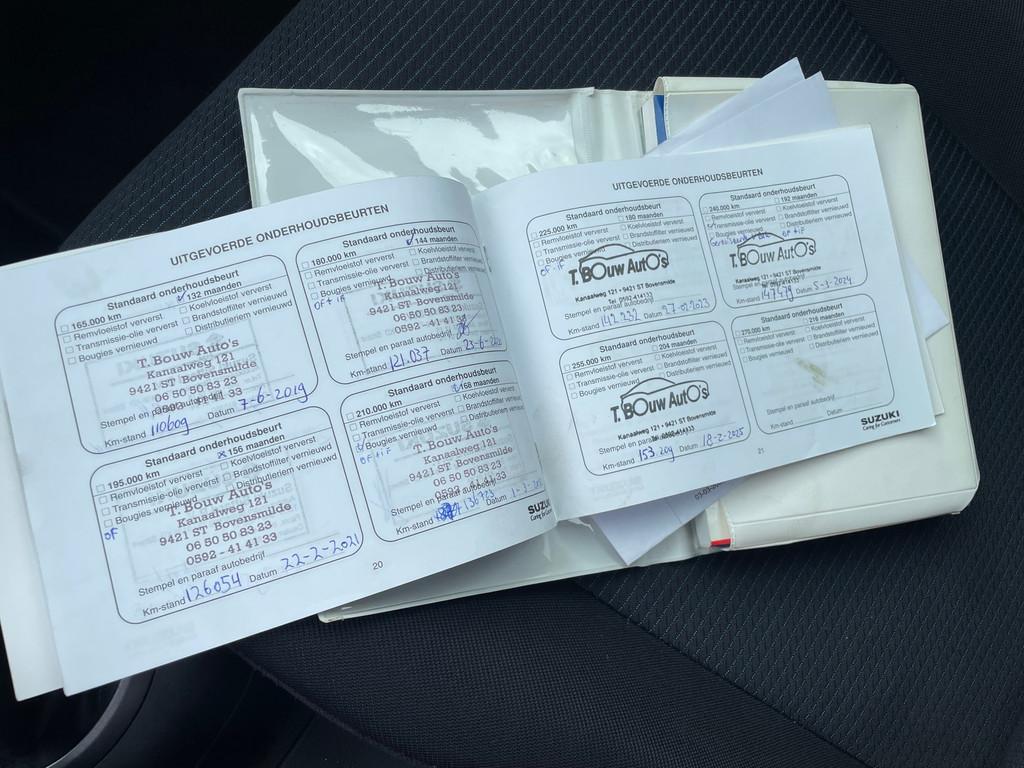 UITGEVOERDE ONDERHOUDSBEURTEN
Standaard onderhoudsbeurt
165.000 km 132 maanden
Remvloeistof ververst Koelvloeistof ververst
Transmissie-olie ververst Brandstoffilter vernieuwd
Bougies vernieuwd Distributieriem vernieuwd
T. Bouw Auto's
Kanaalweg 121
9421 ST Bovensmilde
06 50 50 83 23
0592 - 41 41 33
Stempel en paraaf autobedrijf
Km-stand 110609 Datum 7-6-2019
Standaard onderhoudsbeurt
180.000 km 144 maanden
Remvloeistof ververst Koelvloeistof ververst
Transmissie-olie ververst Brandstoffilter vernieuwd
Bougies vernieuwd Distributieriem
OF + IF
T. Bouw Auto's
Kanaalweg 121
9421 ST Bovensmilde
06 50 50 83 23
0592 - 41 41 33
Stempel en paraaf autobedrijf
Km-stand 121.037 Datum 23-6-
Standaard onderhoudsbeurt
195.000 km 156 maanden
Remvloeistof ververst Koelvloeistof ververst
Transmissie-olie ververst Brandstoffilter vernieuwd
Bougies vernieuwd Distributieriem vernieuwd
OF
T. Bouw Auto's
Kanaalweg 121
9421 ST Bovensmilde
06 50 50 83 23
0592 - 41 41 33
Stempel en paraaf autobedrijf
Km-stand 126054 Datum 22-2-2021
Standaard onderhoudsbeurt
210.000 km 168 maanden
Remvloeistof ververst Koelvloeistof ververst
Transmissie-olie ververst Brandstoffilter vernieuwd
Bougies vernieuwd Distributieriem vernieuwd
OF + IF
T. Bouw Auto's
Kanaalweg 121
9421 ST Bovensmilde
06 50 50 83 23
0592 - 41 41 33
Stempel en paraaf autobedrijf
Km-stand Datum
20
SUZUKI
Caring for
UITGEVOERDE ONDERHOUDSBEURTEN
Standaard onderhoudsbeurt
225.000 km 180 maanden
Remvloeistof ververst Koelvloeistof ververst
Transmissie-olie ververst Brandstoffilter vernieuwd
Bougies vernieuwd Distributieriem vernieuwd
T. BOuw AutO's
Kanaalweg 121 - 9421 ST Bovensmilde
Tel. 0592-414133
Stempel en paraaf autobedrijf
Km-stand 142.232 Datum 27-02-2023
Standaard onderhoudsbeurt
240.000 km 192 maanden
Remvloeistof ververst Koelvloeistof ververst
Transmissie-olie ververst Brandstoffilter vernieuwd
Bougies vernieuwd Distributieriem vernieuwd
T. BOuw AutO's
Kanaalweg 121 - 9421 ST Bovensmilde
Stempel en paraaf autobedrijf
Km-stand 147479 Datum 5-3-2024
Standaard onderhoudsbeurt
255.000 km 204 maanden
Remvloeistof ververst Koelvloeistof ververst
Transmissie-olie ververst Brandstoffilter vernieuwd
Bougies vernieuwd Distributieriem vernieuwd
T. BOuw AutO's
Kanaalweg 121 - 9421 ST Bovensmilde
Tel. 0592-414133
Stempel en paraaf autobedrijf
Km-stand 153.209 Datum 18-2-2025
Standaard onderhoudsbeurt
270.000 km 216 maanden
Remvloeistof ververst Koelvloeistof ververst
Transmissie-olie ververst Brandstoffilter vernieuwd
Bougies vernieuwd Distributieriem vernieuwd
Stempel en paraaf autobedrijf
Km-stand Datum
21
SUZUKI
Caring for Customers